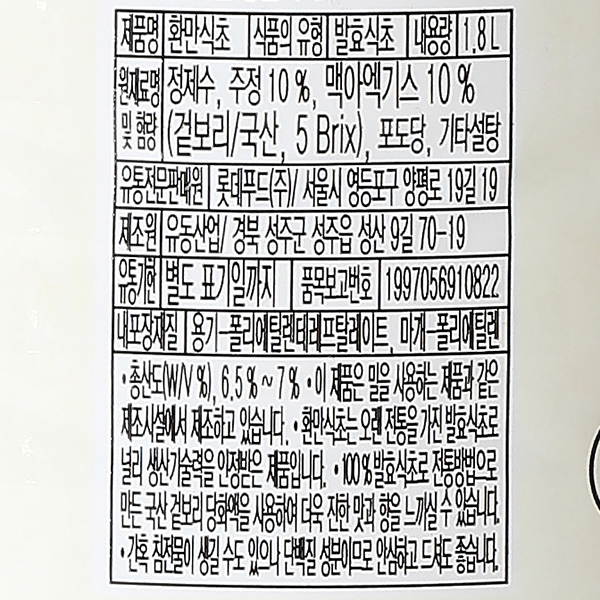 제품명 환만식초 식품의 유형 발효식초 내용량 1.8L
원재료명 정제수, 주정 10%, 맥아엑기스 10%
및 함량 (겉보리/국산, 5 Brix), 포도당, 기타설탕
유통전문판매원 롯데푸드(주)/ 서울시 영등포구 양평로 19길 19
제조원 유동산업/ 경북 성주군 성주읍 성산 9길 70-19
유통기한 별도 표기일까지 품목보고번호 1997056910822
내포장재질 용기-폴리에틸렌테레프탈레이트, 마개-폴리에틸렌
•총산도(W/V%), 6.5%~7% •이 제품은 밀을 사용하는 제품과 같은
제조시설에서 제조하고 있습니다. •환만식초는 오랜 전통을 가진 발효식초로
널리 생산기술력을 인정받은 제품입니다. •100%발효식초로 전통방법으로
만든 국산 겉보리 당화액을 사용하여 더욱 진한 맛과 향을 느끼실 수 있습니다.
•간혹 침전물이 생길 수도 있으나 단백질 성분이므로 안심하고 드셔도 좋습니다.